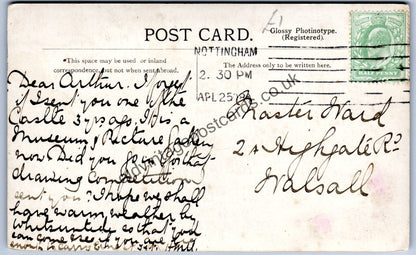 £1
POST CARD.
Glossy Photinotype.
(Registered).
This space may be used for inland
correspondence, but not when sent abroad.
The Address only to be written here.
NOTTINGHAM
2. 30 PM
APL 25
Dear Arthur. I
I sent you one of the
Castle 3 yrs ago. It is a
Museum & Picture Gallery
now Did you
drawing Competition
sent you? I hope we shall
have warm weather by
Whitsuntide so that you
can come see
Master Ward
Highgate Rd
Walsall